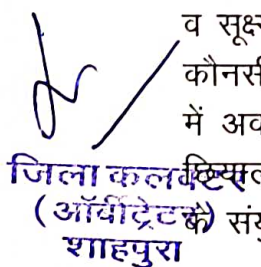 व सूक्ष
कौनसी
में अव
जिला कलक्टर
(ऑर्बीट्रेटर) के संयु
शाहपुरा